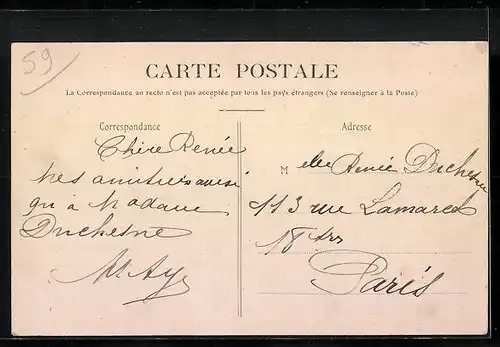 59
CARTE POSTALE
La Correspondance au recto n'est pas acceptée par tous les pays étrangers (Se renseigner à la Poste)
Correspondance
Chère Renée
mes amitiés ainsi
qu'à Madame
Duchesne
Adresse
M elle Renée Duchesne
113 rue Lamarck
18 Arr
Paris